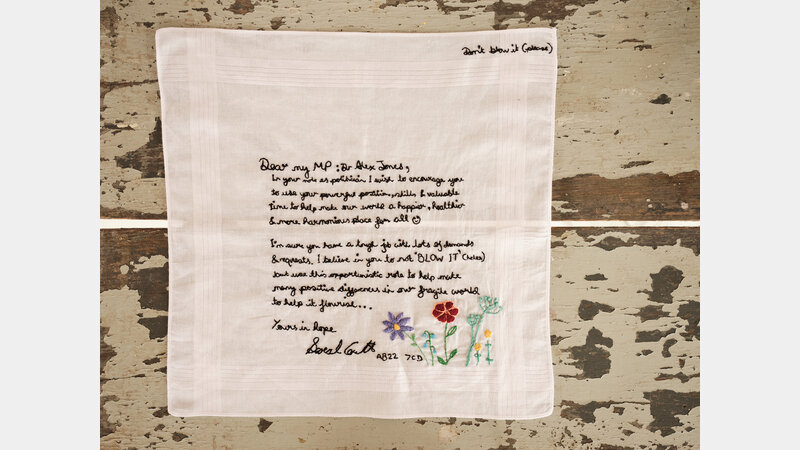 Don't blow it (please)
Dear my MP : Dr Alex Jones,
In your role as politician I wish to encourage you
to use your powerful position, skills & valuable
time to help make our world a happier, healthier
& more harmonious place for all ☺
I'm sure you have a tough job with lots of demands
& requests. I believe in you to not "BLOW IT"
but use this opportunistic role to help make
many positive differences in our fragile world
to help it flourish...
Yours in hope
AB22 7CD